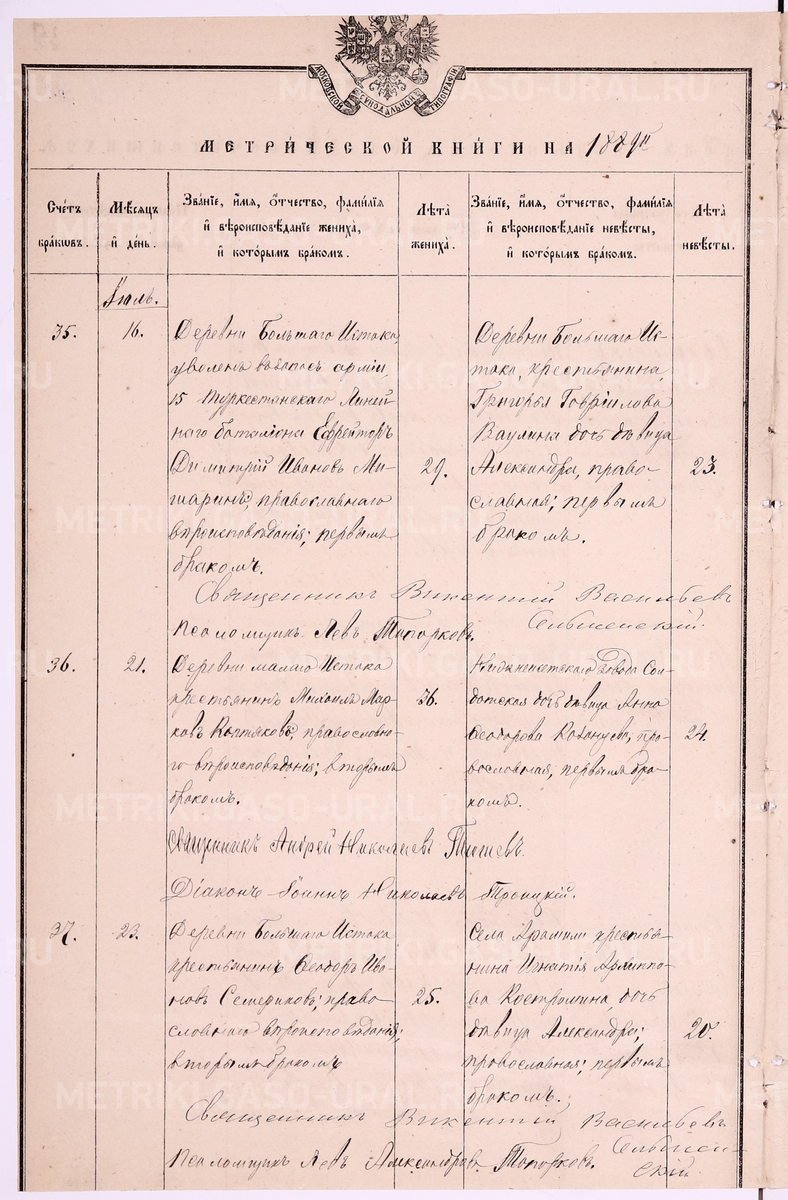 МОСКОВСКОЙ СѴНОДАЛЬНОЙ ТИПОГРАФІИ
МЕТРИ́ЧЕСКОЙ КНИ́ГИ НА 1889й
Сче́тъ бра́кωвъ.
Мѣ́сѧцъ и҆ де́нь.
Зва́нїе, и҆́мѧ, ѻ҆́тчество, фами́лїѧ
и҆ вѣроисповѣ́данїе жениха̀,
и҆ кото́рымъ бра́комъ.
Лѣ́та жениха̀.
Зва́нїе, и҆́мѧ, ѻ҆́тчество, фами́лїѧ
и҆ вѣроисповѣ́данїе невѣ́сты,
и҆ кото́рымъ бра́комъ.
Лѣ́та невѣ́сты.
Іюль.
35.
16.
Деревни Большаго Истока,
уволенъ въ запасъ арміи,
15 Туркестанскаго Линей-
наго баталіона Ефрейторъ
Димитрій Ивановъ Ми-
шаринъ, православнаго
вѣроисповѣданія; первымъ
бракомъ.
29.
Деревни Большаго Ис-
тока, крестьянина,
Григорья Гавріилова
Ваулина дочь дѣвица
Александра, право-
славная; первымъ
бракомъ.
23.
Священникъ Викентій Васильевъ
Сельменскій.
Псаломщикъ Левъ Топорковъ.
36.
21.
Деревни малаго Истока
крестьянинъ Михаилъ Мар-
ковъ православна-
го вѣроисповѣданія; вторымъ
бракомъ.
36.
завода Сол-
датская дочь дѣвица Анна
Ѳеодорова пра-
вославная, первымъ бра-
комъ.
24.
Священникъ Андрей Николаевъ
Діаконъ Іоаннъ Николаевъ Троицкій.
37.
23.
Деревни Большаго Истока
крестьянинъ Ѳеодоръ Ива-
новъ Семериковъ; право-
славнаго вѣроисповѣданія;
вторымъ бракомъ
25.
Села Арамили крестья-
нина Игнатія Архиппо-
ва Костромина, дочь
дѣвица Александра;
православная; первымъ
бракомъ.
20.
Священникъ Викентій Васильевъ
Сельмен-
скій
Псаломщикъ Левъ Александровъ Топорковъ.
METRIKI.GASO-URAL.RU